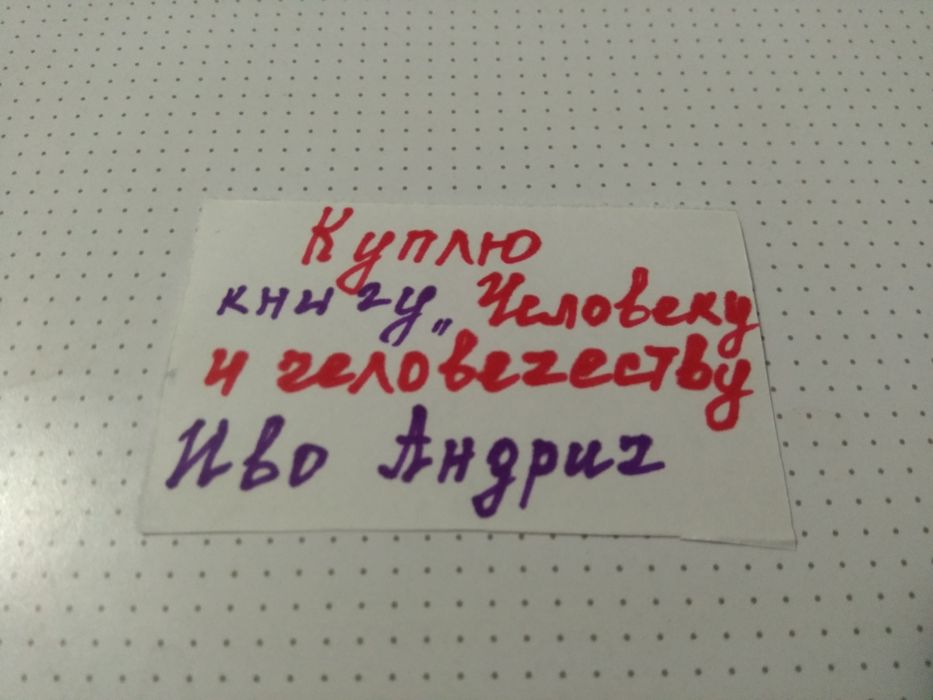 Куплю
книгу „Человеку
и человечеству
Иво Андрич